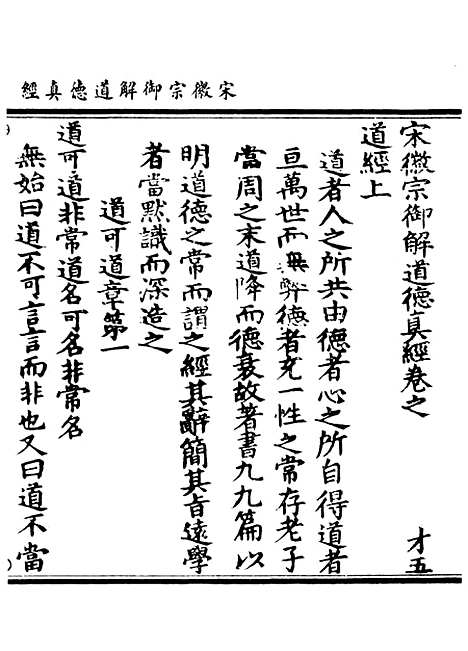 宋徽宗御解道德真經
宋徽宗御解道德真經卷之 才五
道經上
道者人之所共由德者心之所自得道者
亘萬世而無弊德者充一性之常存老子
當周之末道降而德衰故著書九九篇以
明道德之常而謂之經其辭簡其旨遠學
者當默識而深造之
道可道章第一
道可道非常道名可名非常名
無始曰道不可言言而非也又曰道不當